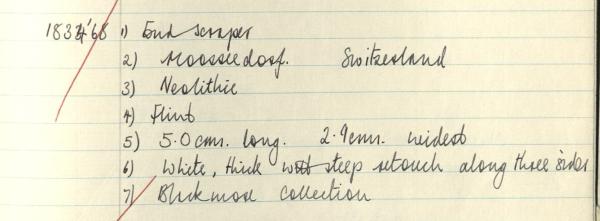 1834'68 1) End scraper
2) Moosseedorf. Switzerland
3) Neolithic
4) Flint
5) 5.0 cms. long. 2.9 cms. widest
6) White, thick steep retouch along three sides
7) Blackmore collection